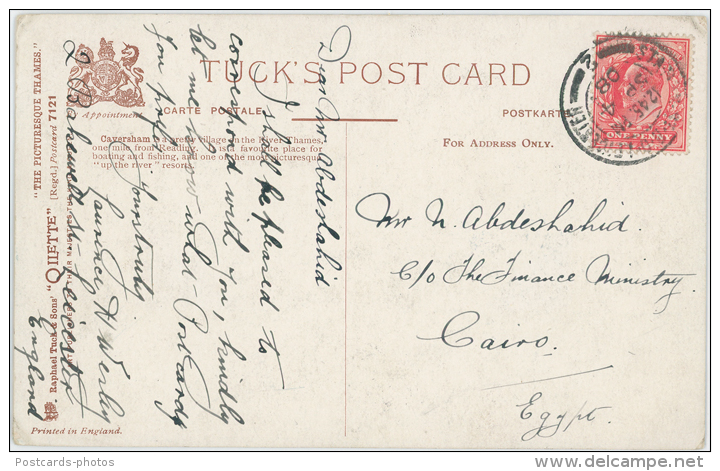 TUCK'S POST CARD
By Appointment.
CARTE POSTALE
POSTKARTE
Caversham is a pretty village on the River Thames,
one mile from Reading. It is a favorite place for
boating and fishing, and one of the most picturesque
"up the river" resorts.
FOR ADDRESS ONLY.
"THE PICTURESQUE THAMES."
[Regd.] Postcard 7121
Raphael Tuck & Sons' "OILETTE"
Printed in England.
Dear Mr Abdeshahid
I shall be pleased to
correspond with you, kindly
let me know what Post Cards
you prefer
Yours truly
Laurence H Wesley
2 Bakewell St Leicester
England
Mr N. Abdeshahid.
C/o The Finance Ministry.
Cairo.
Egypt.
ONE PENNY
LEICESTER
Postcards-photos
delcampe.net